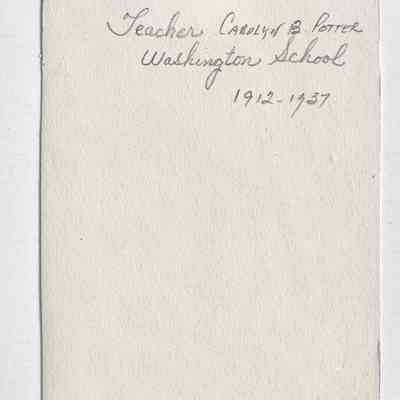 Teacher CAROLYN B POTTER
Washington School
1912-1937